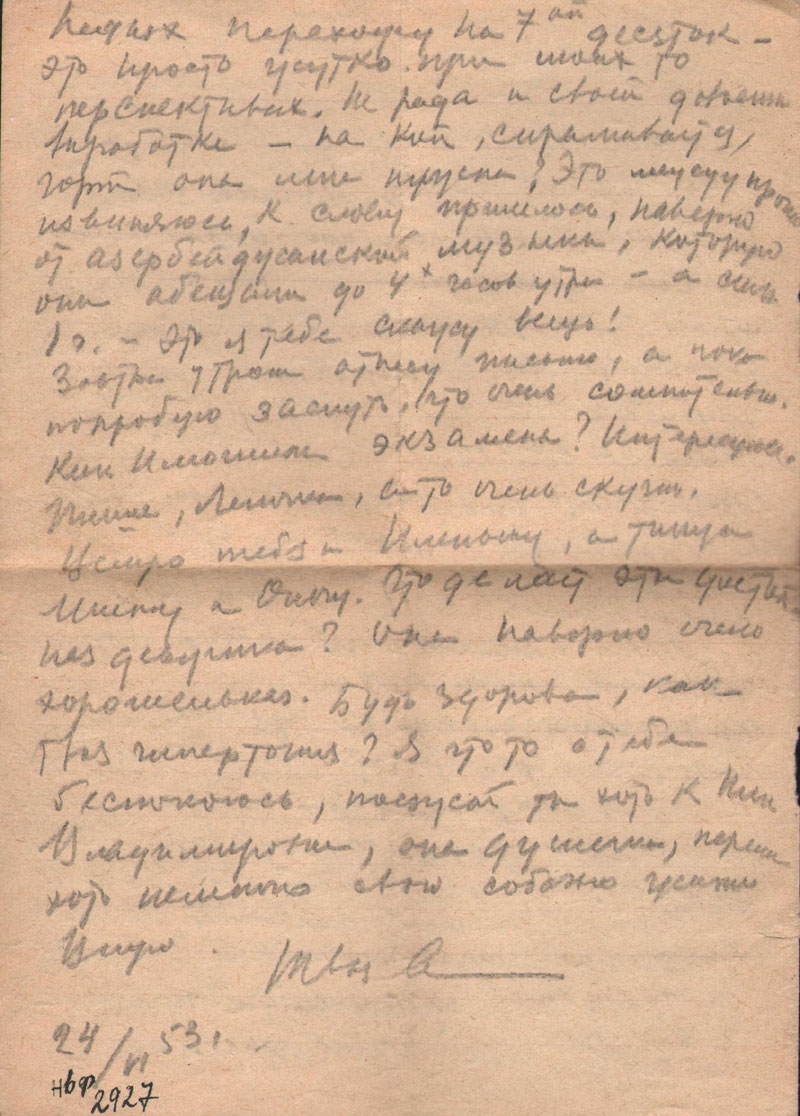 перехожу на 7ой десяток —
это просто жутко при моих то
перспективах. Не рада и своей
— на кой, спрашивается,
она мне нужна? Это
извиняюсь, к слову пришлось, наверно
от азербейджанской музыки, которую
они обещали до 4х часов утра — а сейчас
1 ч. — Это я тебе скажу вещь!
Завтра утром отнесу письмо, а пока
попробую заснуть, что очень сомнительно.
Как экзамены?
Пиши, Леночка, а то очень скучно.
Целую тебя и, а также
и. Что делает эта
ная девушка? Она наверно очень
хорошенькая. Будь здорова, как
твоя гипертония? Я что то о тебе
беспокоюсь, поезжай ты хоть к
Владимировне, она душечка,
хоть немного свою собачью жизнь
Целую.
Твоя А
24/VI 53 г.
НВФ
2927